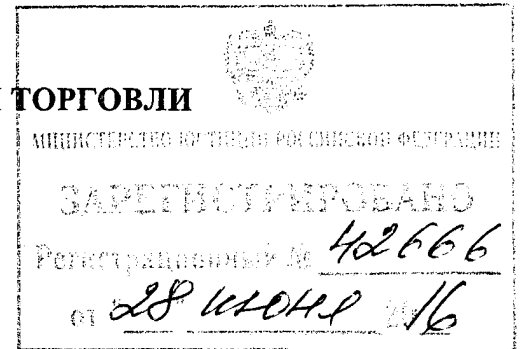 И ТОРГОВЛИ
МИНИСТЕРСТВО ЮСТИЦИИ РОССИЙСКОЙ ФЕДЕРАЦИИ
ЗАРЕГИСТРИРОВАНО
Регистрационный № 42666
от "28" июня 2016